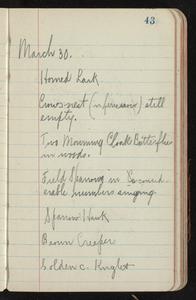 43
March 30.
Horned Lark
Crow's nest (                ) still
empty.
Two Mourning Cloak Butterflies
in woods.
Field Sparrow in consid-
erable numbers singing
Sparrow Hawk
Brown Creeper
Golden c. Kinglet